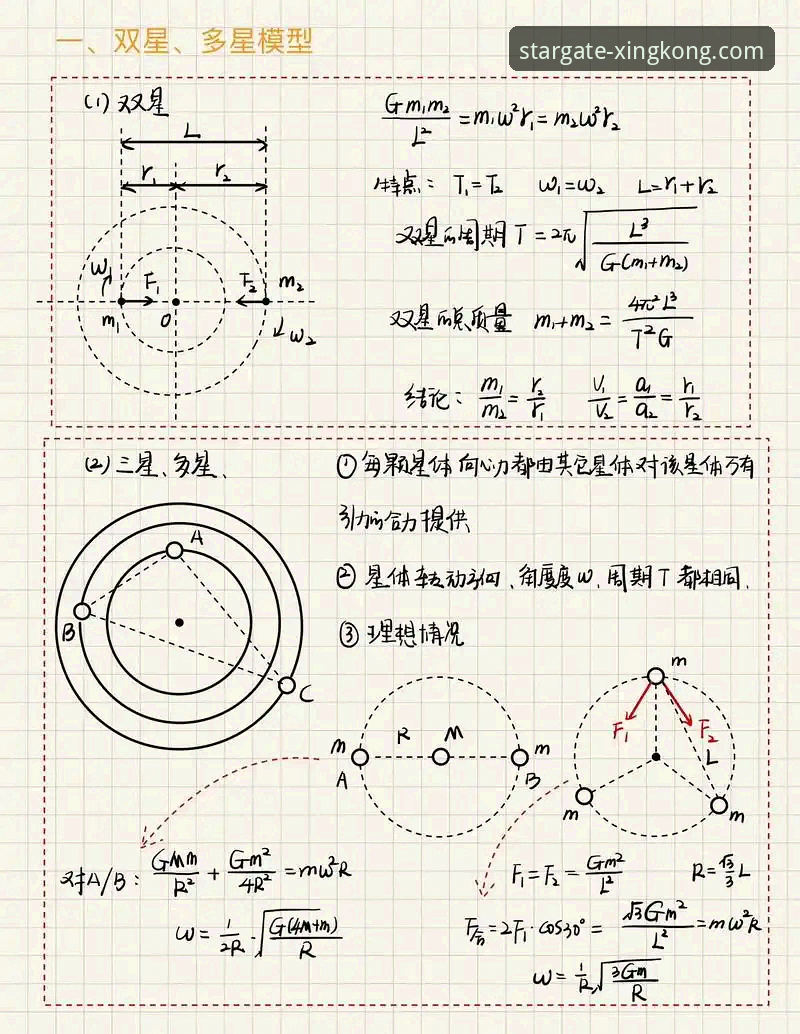 一、双星、多星模型
stargate-xingkong.com
(1) 双星
L
r₁ r₂
ω₁ F₁ F₂ m₂
m₁ O ω₂
Gm₁m₂/L² = m₁ω²r₁ = m₂ω²r₂
特点： T₁=T₂ ω₁=ω₂ L=r₁+r₂
双星的周期 T = 2π√(L³/G(m₁+m₂))
双星的总质量 m₁+m₂ = 4π²L³/T²G
结论： m₁/m₂ = r₂/r₁ v₁/v₂ = a₁/a₂ = r₁/r₂
(2) 三星、多星、
A
B
C
① 每颗星体向心力都由其它星体对该星体万有
引力的合力提供
② 星体转动方向、角度度ω、周期T都相同.
③ 理想情况
m R M m
A B
m
F₁ F₂
L
m m
对A/B： GMm/R² + Gm²/4R² = mω²R
ω = 1/2R · √(G(4M+m)/R)
F₁=F₂ = Gm²/L² R=√3/3 L
F合=2F₁·cos30° = √3Gm²/L² = mω²R
ω = 1/R √(3Gm/R)